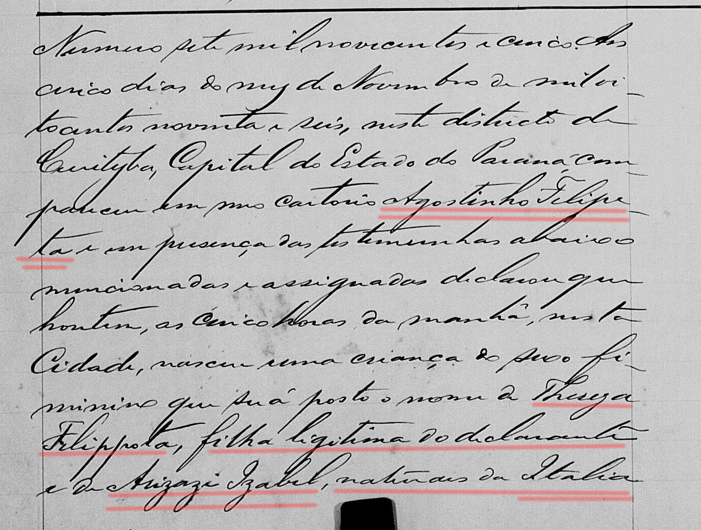 Numero sete mil novecentos e cinco. Aos
cinco dias do mez de Novembro de mil oi-
tocentos noventa e seis, neste districto de
Curityba, Capital do Estado do Paraná, com-
pareceu em meu cartorio Agostinho Filipe-
ta e em presença das testemunhas abaixo
mencionadas e assignadas declarou que
hontem, as cinco horas da manhã, nesta
Cidade, nasceu uma criança do sexo fi-
minino que será posto o nome de Thereza
Filippeta, filha legitima do declarante
e de Izabel, naturaes da Italia